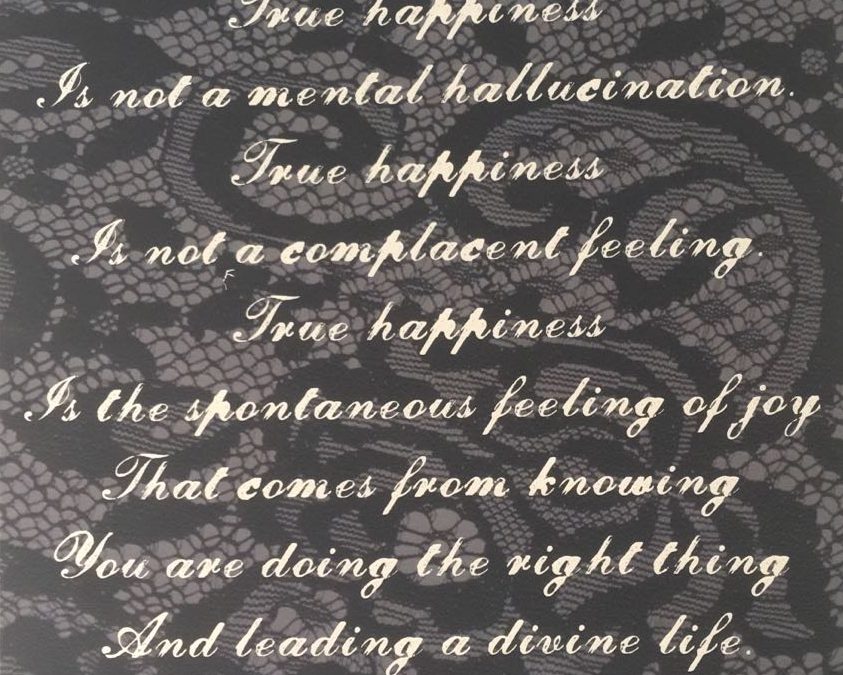 True happiness
Is not a mental hallucination.
True happiness
Is not a complacent feeling.
True happiness
Is the spontaneous feeling of joy
That comes from knowing
You are doing the right thing
And leading a divine life.